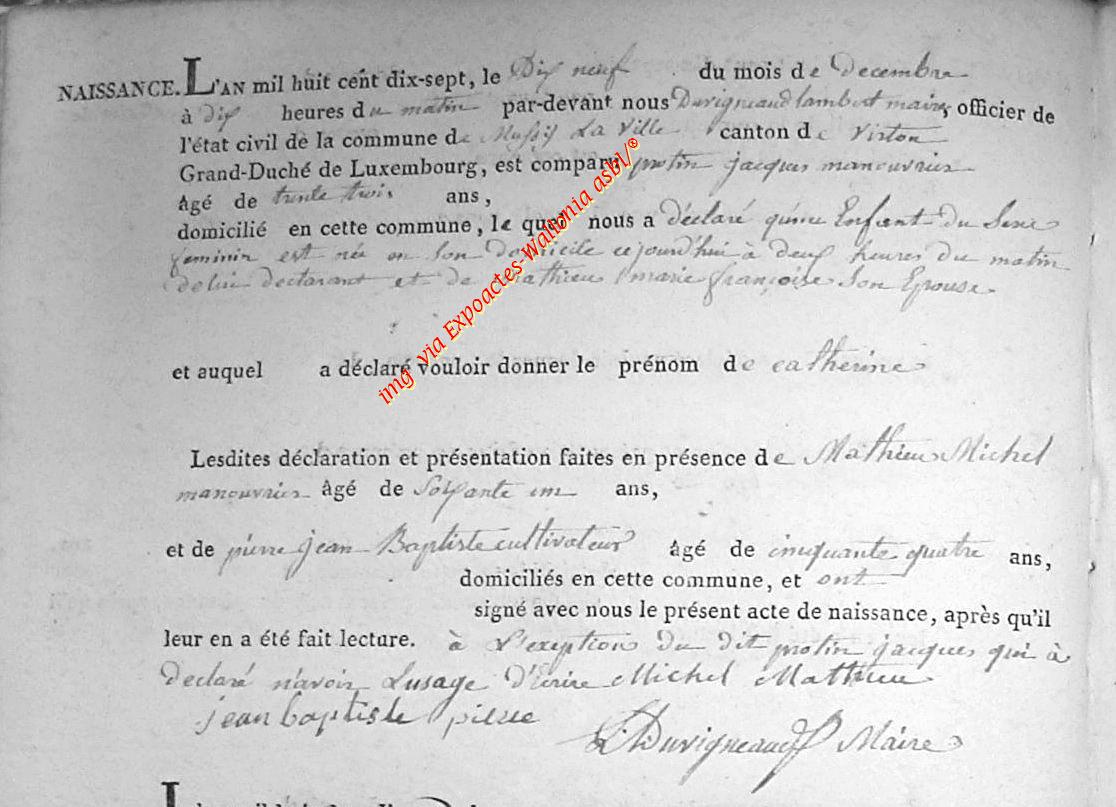 NAISSANCE. L'AN mil huit cent dix-sept, le Dix neuf du mois de Decembre
à dix heures du matin par-devant nous Duvigneaud lambert maire, officier de
l'état civil de la commune de Mussy La Ville canton de Virton
Grand-Duché de Luxembourg, est comparu protin jacques manouvrier
âgé de trente trois ans,
domicilié en cette commune, le quel nous a déclaré qu'une Enfant du Sexe
feminin est née en Son domicile cejourd'hui à deux heures du matin
de lui declarant et de mathieu marie françoise Son Epouse
et auquel a déclaré vouloir donner le prénom de catherine
Lesdites déclaration et présentation faites en présence de Mathieu Michel
manouvrier âgé de Soixante un ans,
et de pierre jean Baptiste cultivateur âgé de cinquante quatre ans,
domiciliés en cette commune, et ont
signé avec nous le présent acte de naissance, après qu'il
leur en a été fait lecture. à L'exeption du dit protin jacques qui à
Declaré n'avoir Lusage D'Ecrire Michel Mathieu
jean baptiste pierre
L. Duvigneaud Maire
img via Expoactes-Wallonia asbl/®